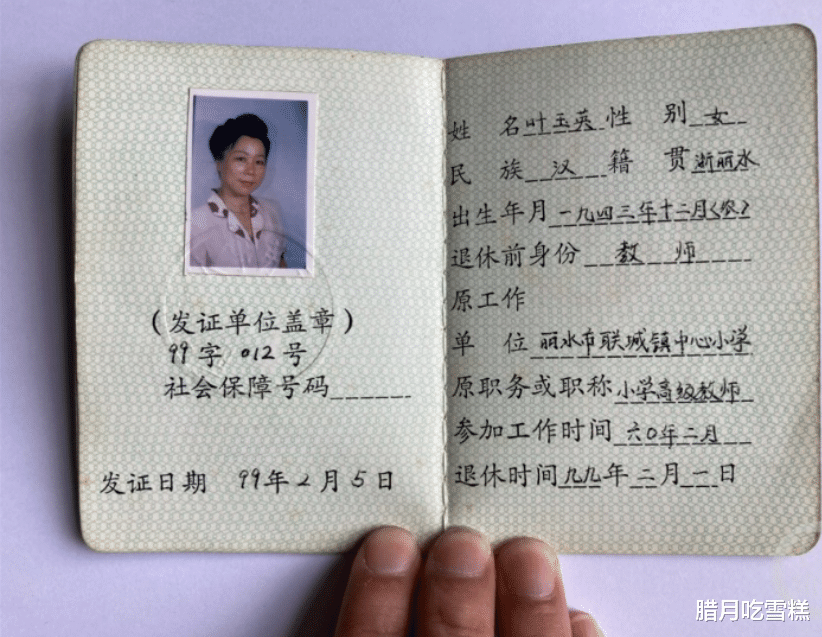 （发证单位盖章）
99字 012号
社会保障号码
发证日期 99年2月5日
姓名 叶玉英 性别 女
民族 汉 籍贯 浙丽水
出生年月 一九四三年十二月（农）
退休前身份 教师
原工作
单位 丽水市联城镇中心小学
原职务或职称 小学高级教师
参加工作时间 六0年二月
退休时间 九九年二月一日
腊月吃雪糕